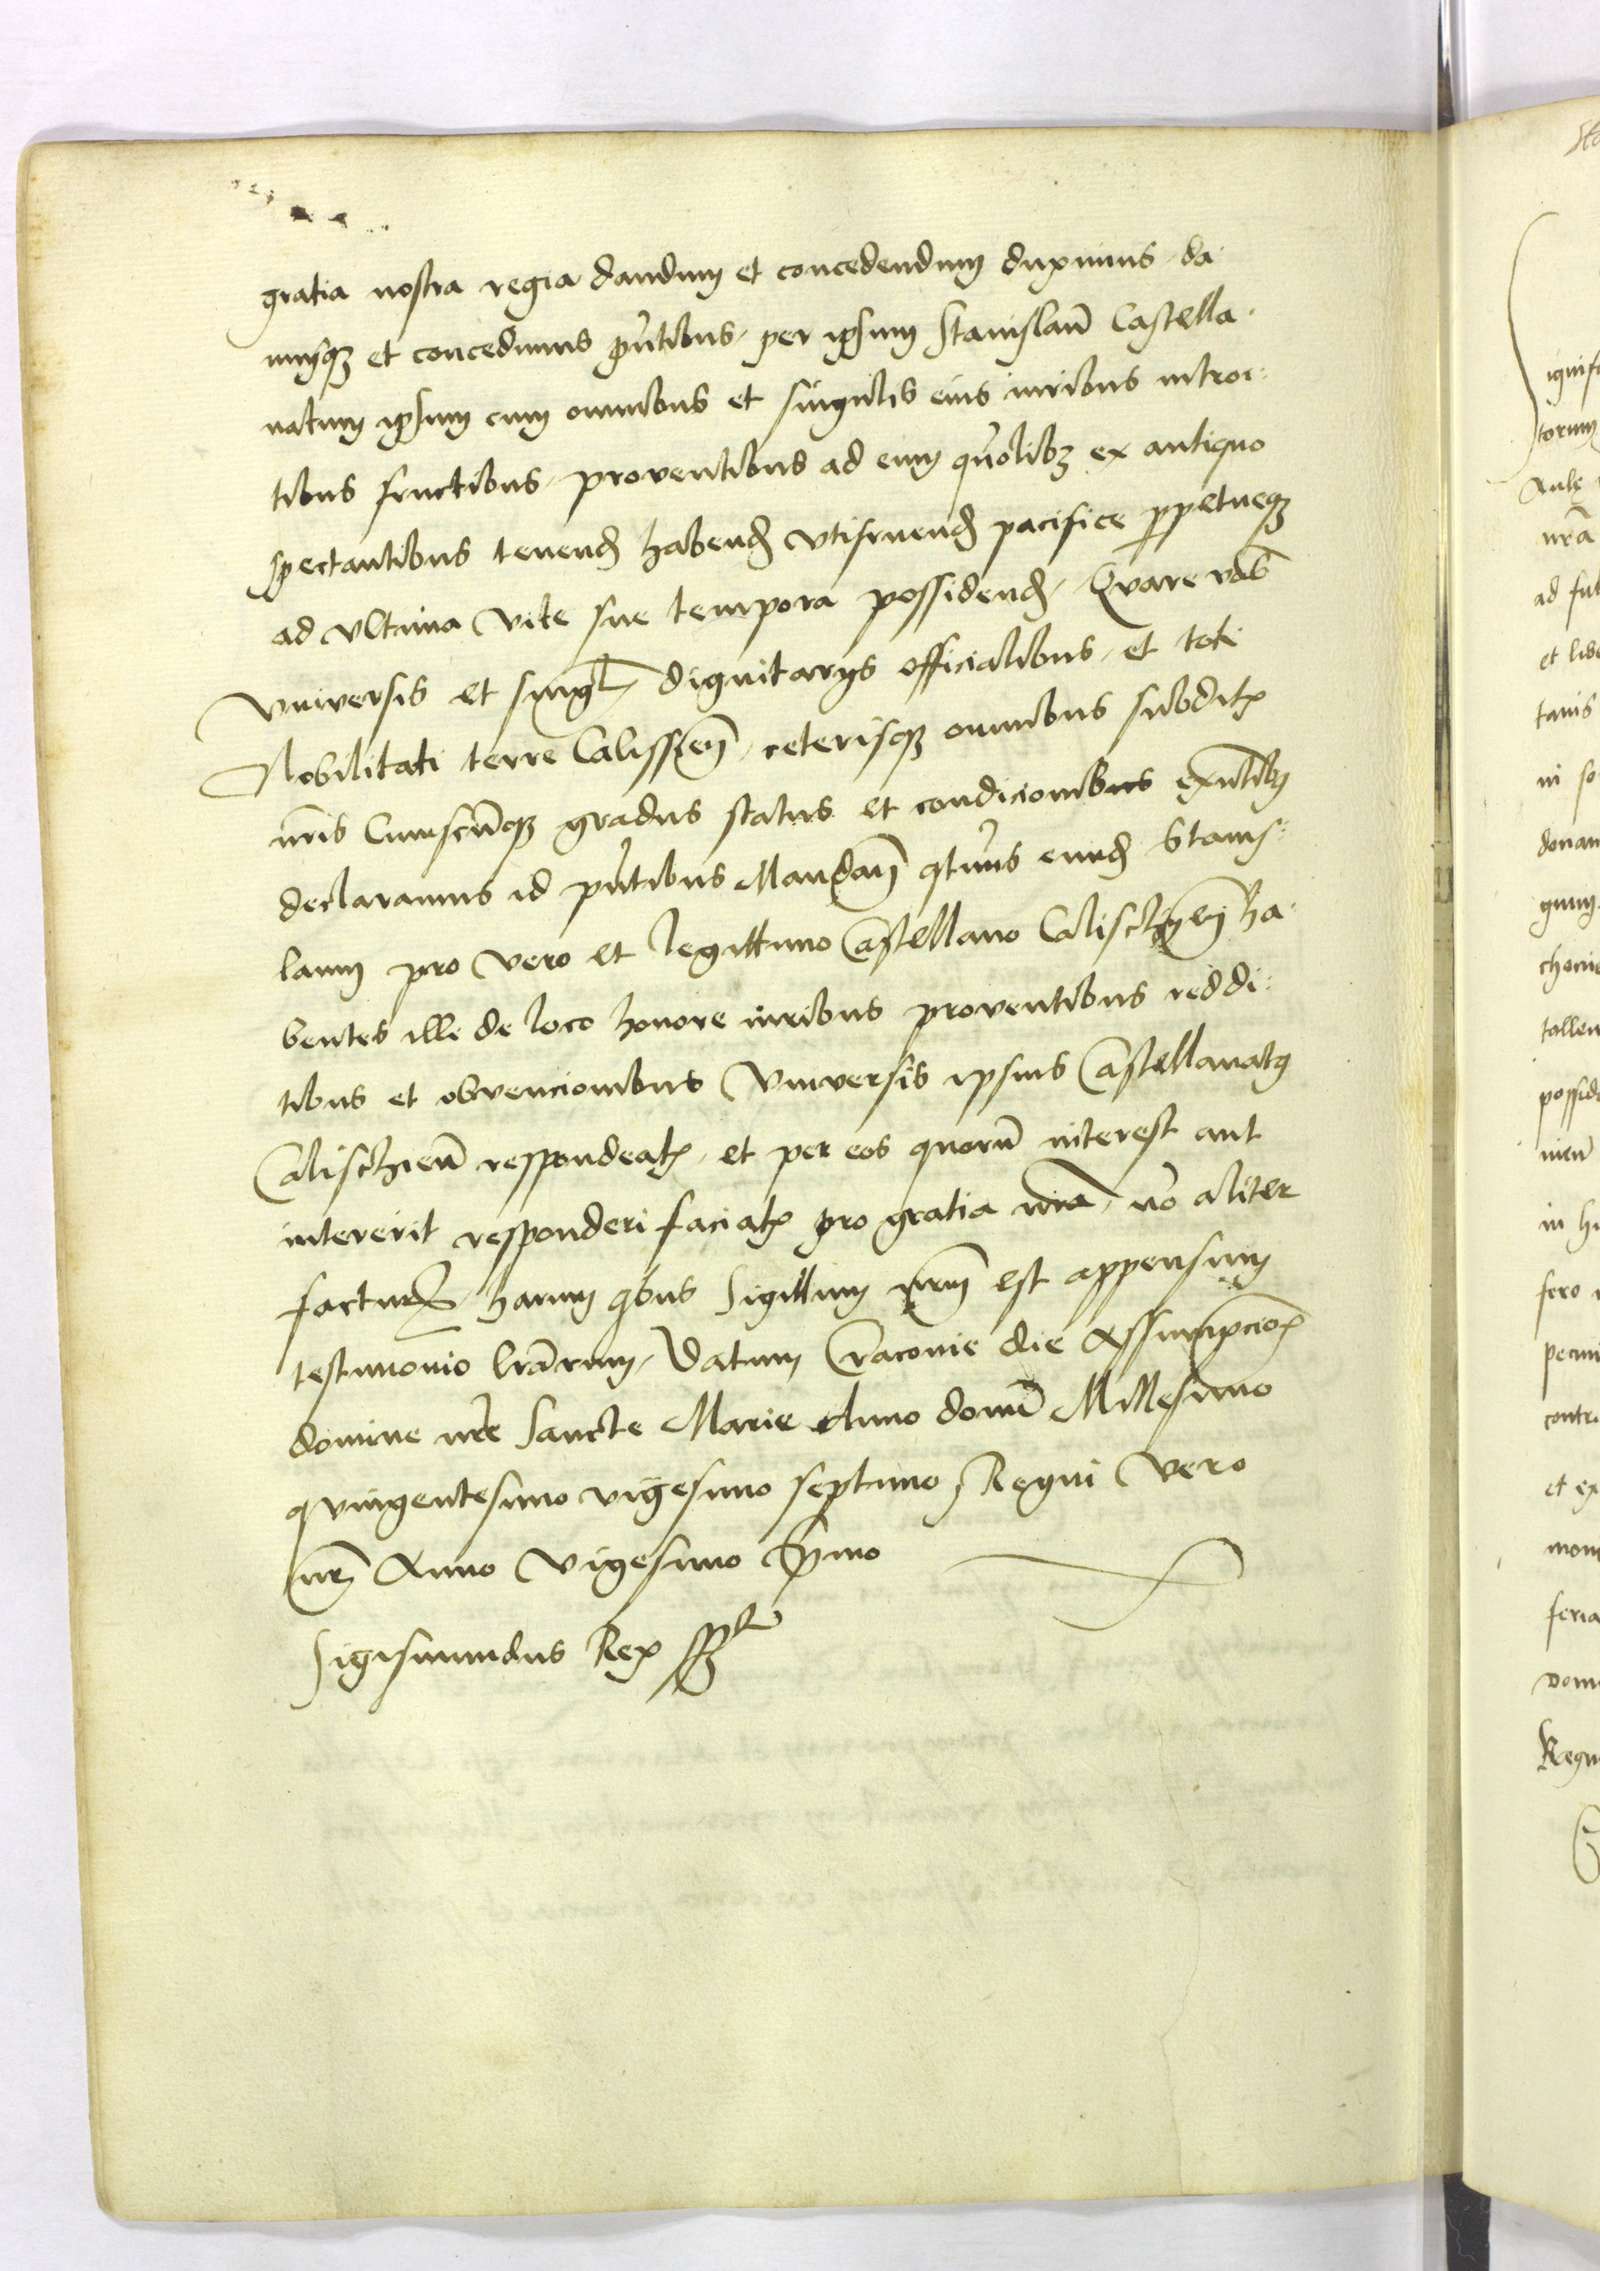 gratia nostra regia dandum et concedendum duximus. da-
musq3 et concedimus pn̄tibus. per ipsum Stanislaū Castella-
natum ipsum cum omnibus et singulis eius iuribus introi-
tibus fructibus. proventibus ad eum qūolib3 ex antiquo
spectantibus tenend̄ habend̄ utifruend̄ pacifice ppetueq3
ad ultima vite sue tempora possidend̄. Quare vob̄
Universis et singl̄ dignitarys officialibus. et toti
Nobilitati terre Calissien̄. ceterisq3 omnibus subdit̄
nr̄is Cuiuscūq3 gradus status et condicionibus exn̄tib3
declaramus id pn̄tibus Mandan̄ qt̄nus eund̄ Stanis-
laum pro vero et legittimo Castellano Calischien̄ ha-
bentes illi de loco honore iuribus proventibus reddi-
tibus et obvencionibus Universis ipsius Castellanatꝰ
Calischien̄ respondeat̄. et per eos quorū interest aut
intererit responderi faciat̄ pro gratia nr̄a. nō aliter
factur̄. harum qbus Sigillum nr̄m est appensum
testimonio lr̄arum. Datum Cracovie die Assumpcio͞
domine nr̄e Sancte Marie Anno domī Millesimo
quingentesimo vigesimo septimo, Regni vero
nr̄i Anno vigesimo Pmo
Sigismundus Rex sspt

Aule
nr̄a
ad fut
tanis
donan
possid
in h
contr
et ex
feria
Regn